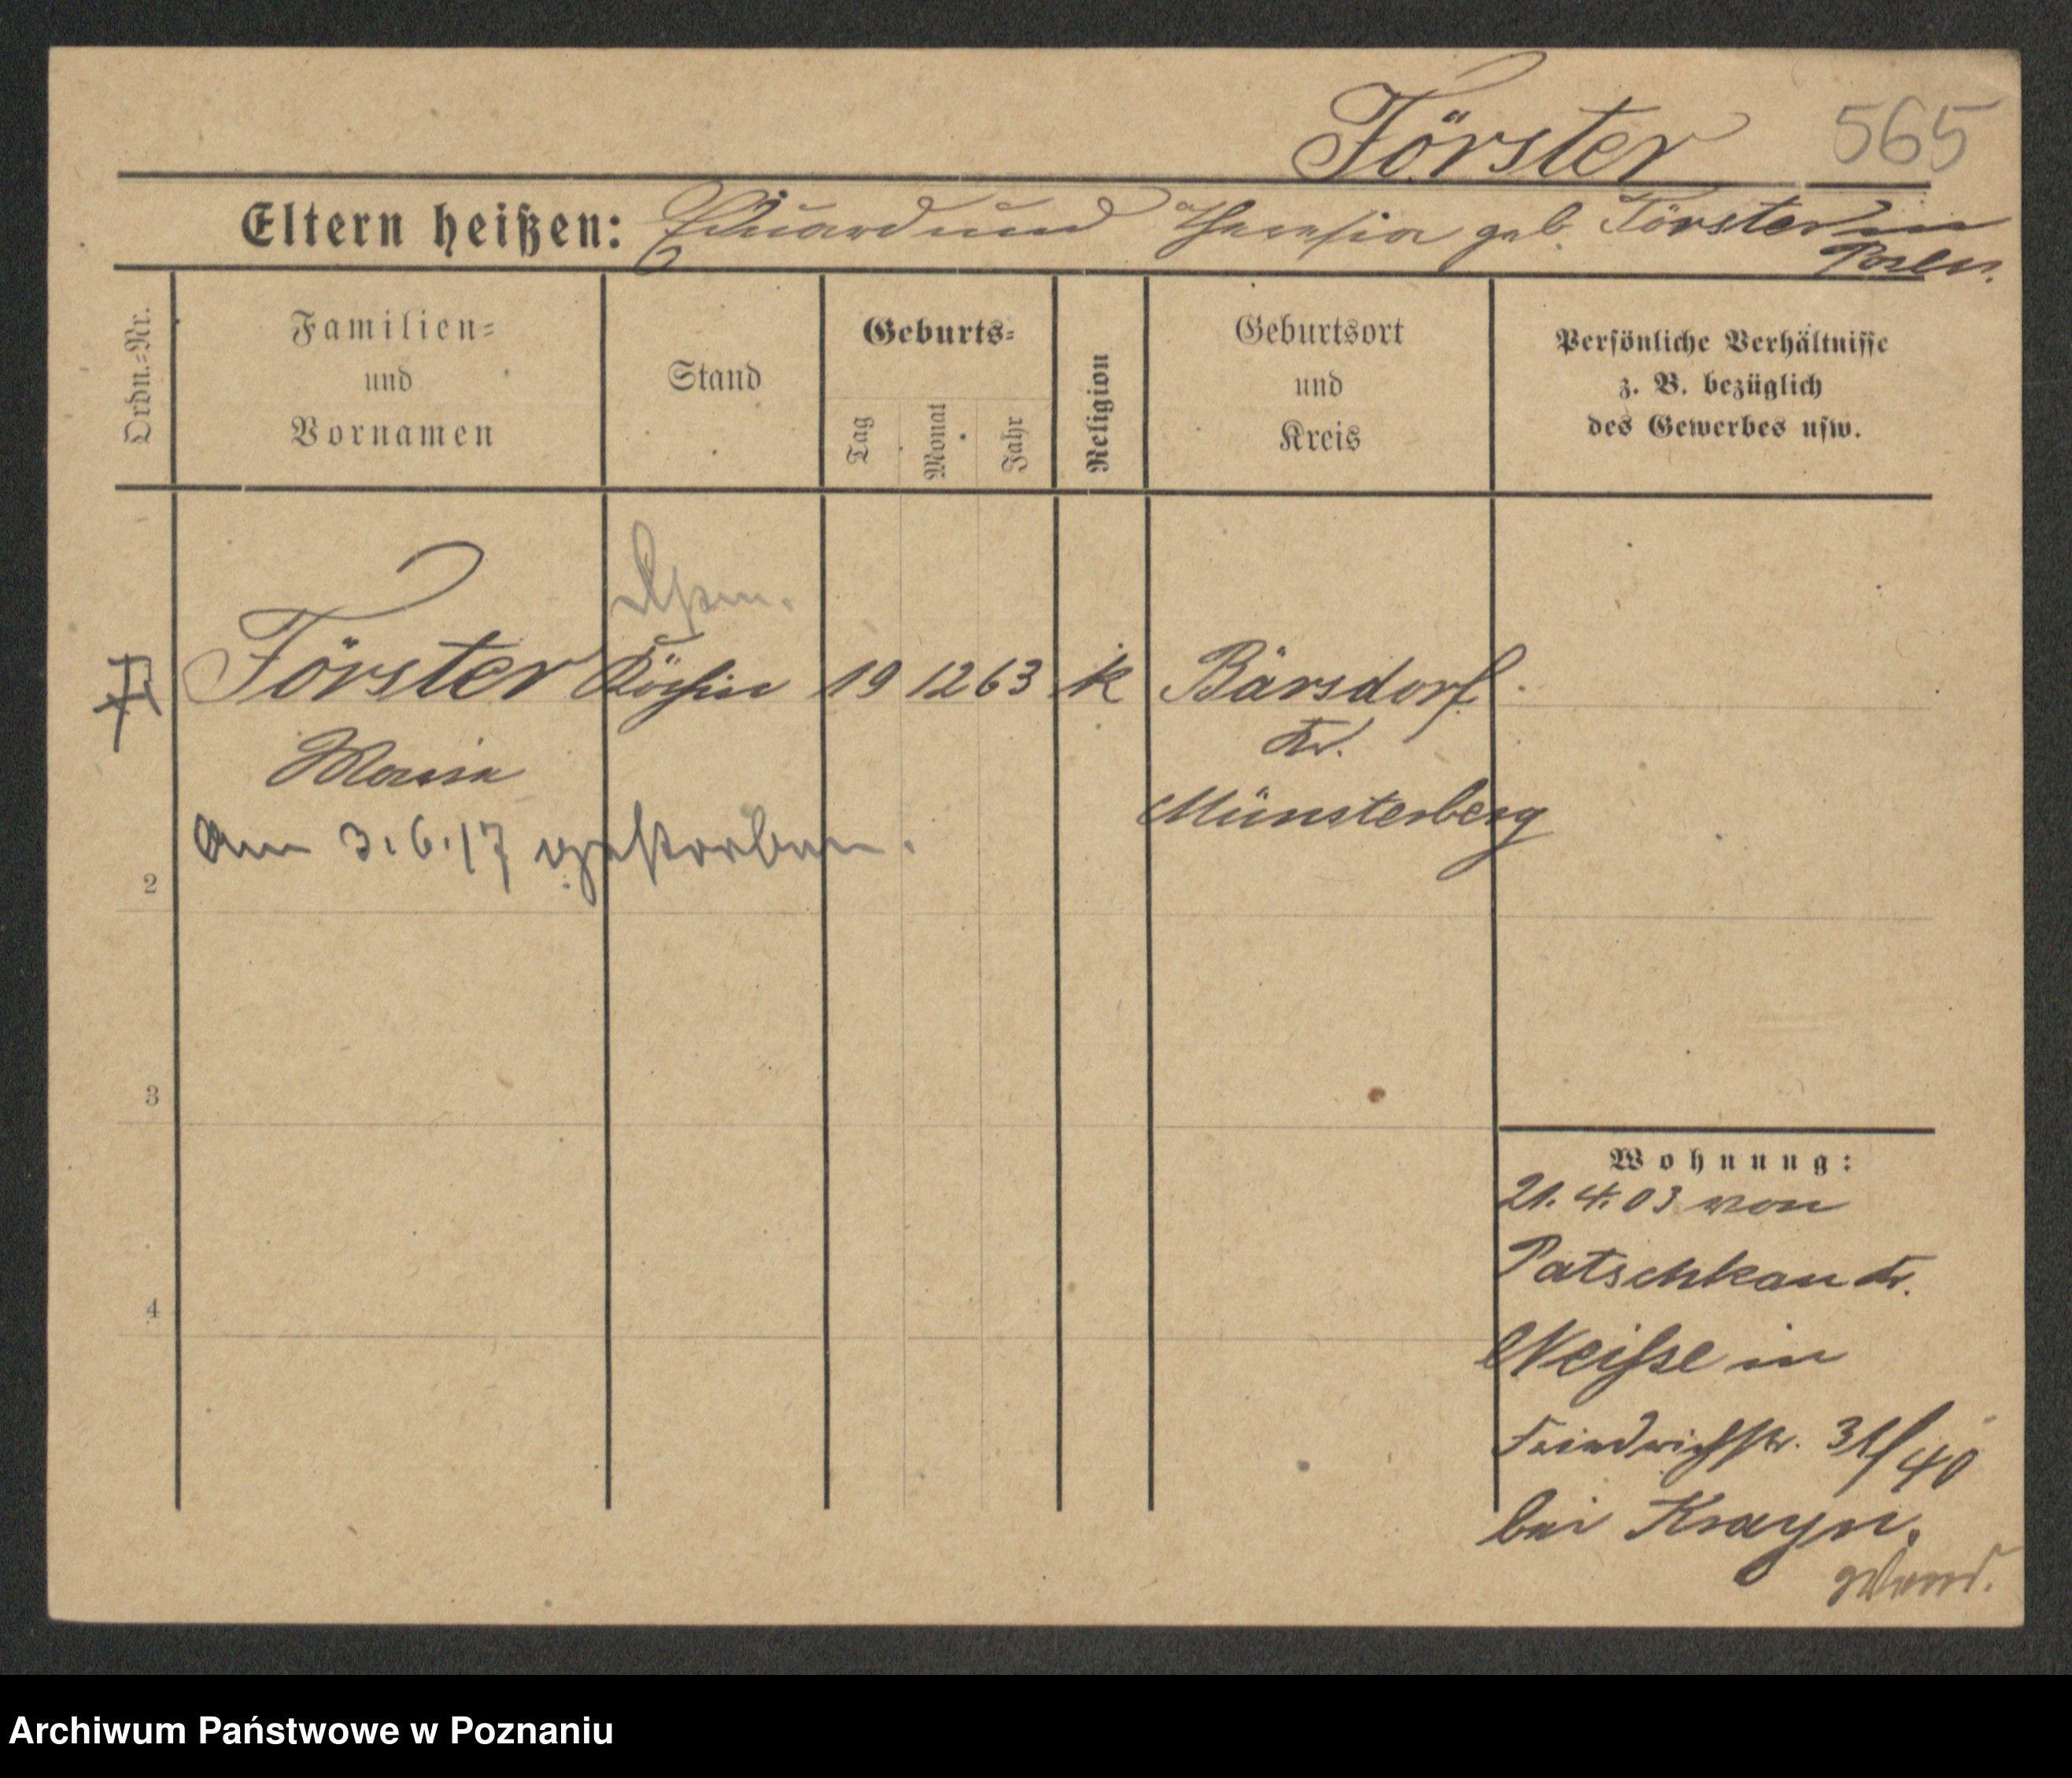 Förster 565
Eltern heißen: Eduard und Theresia geb. Förster in
Posen.
Ordn.=Nr.
Familien=
und
Vornamen
Stand
Geburts=
Tag
Monat
Jahr
Religion
Geburtsort
und
Kreis
Persönliche Verhältnisse
z. B. bezüglich
des Gewerbes usw.
Förster Köchin 19 12 63 k Bärsdorf
Kr.
Maria
Münsterberg
am 3.6.17 gestorben.
2
3
4
Wohnung:
21.4.03 von
Patschkau Kr.
Neisse in
Friedrichstr. 31/40
bei Krayn.
Archiwum Państwowe w Poznaniu